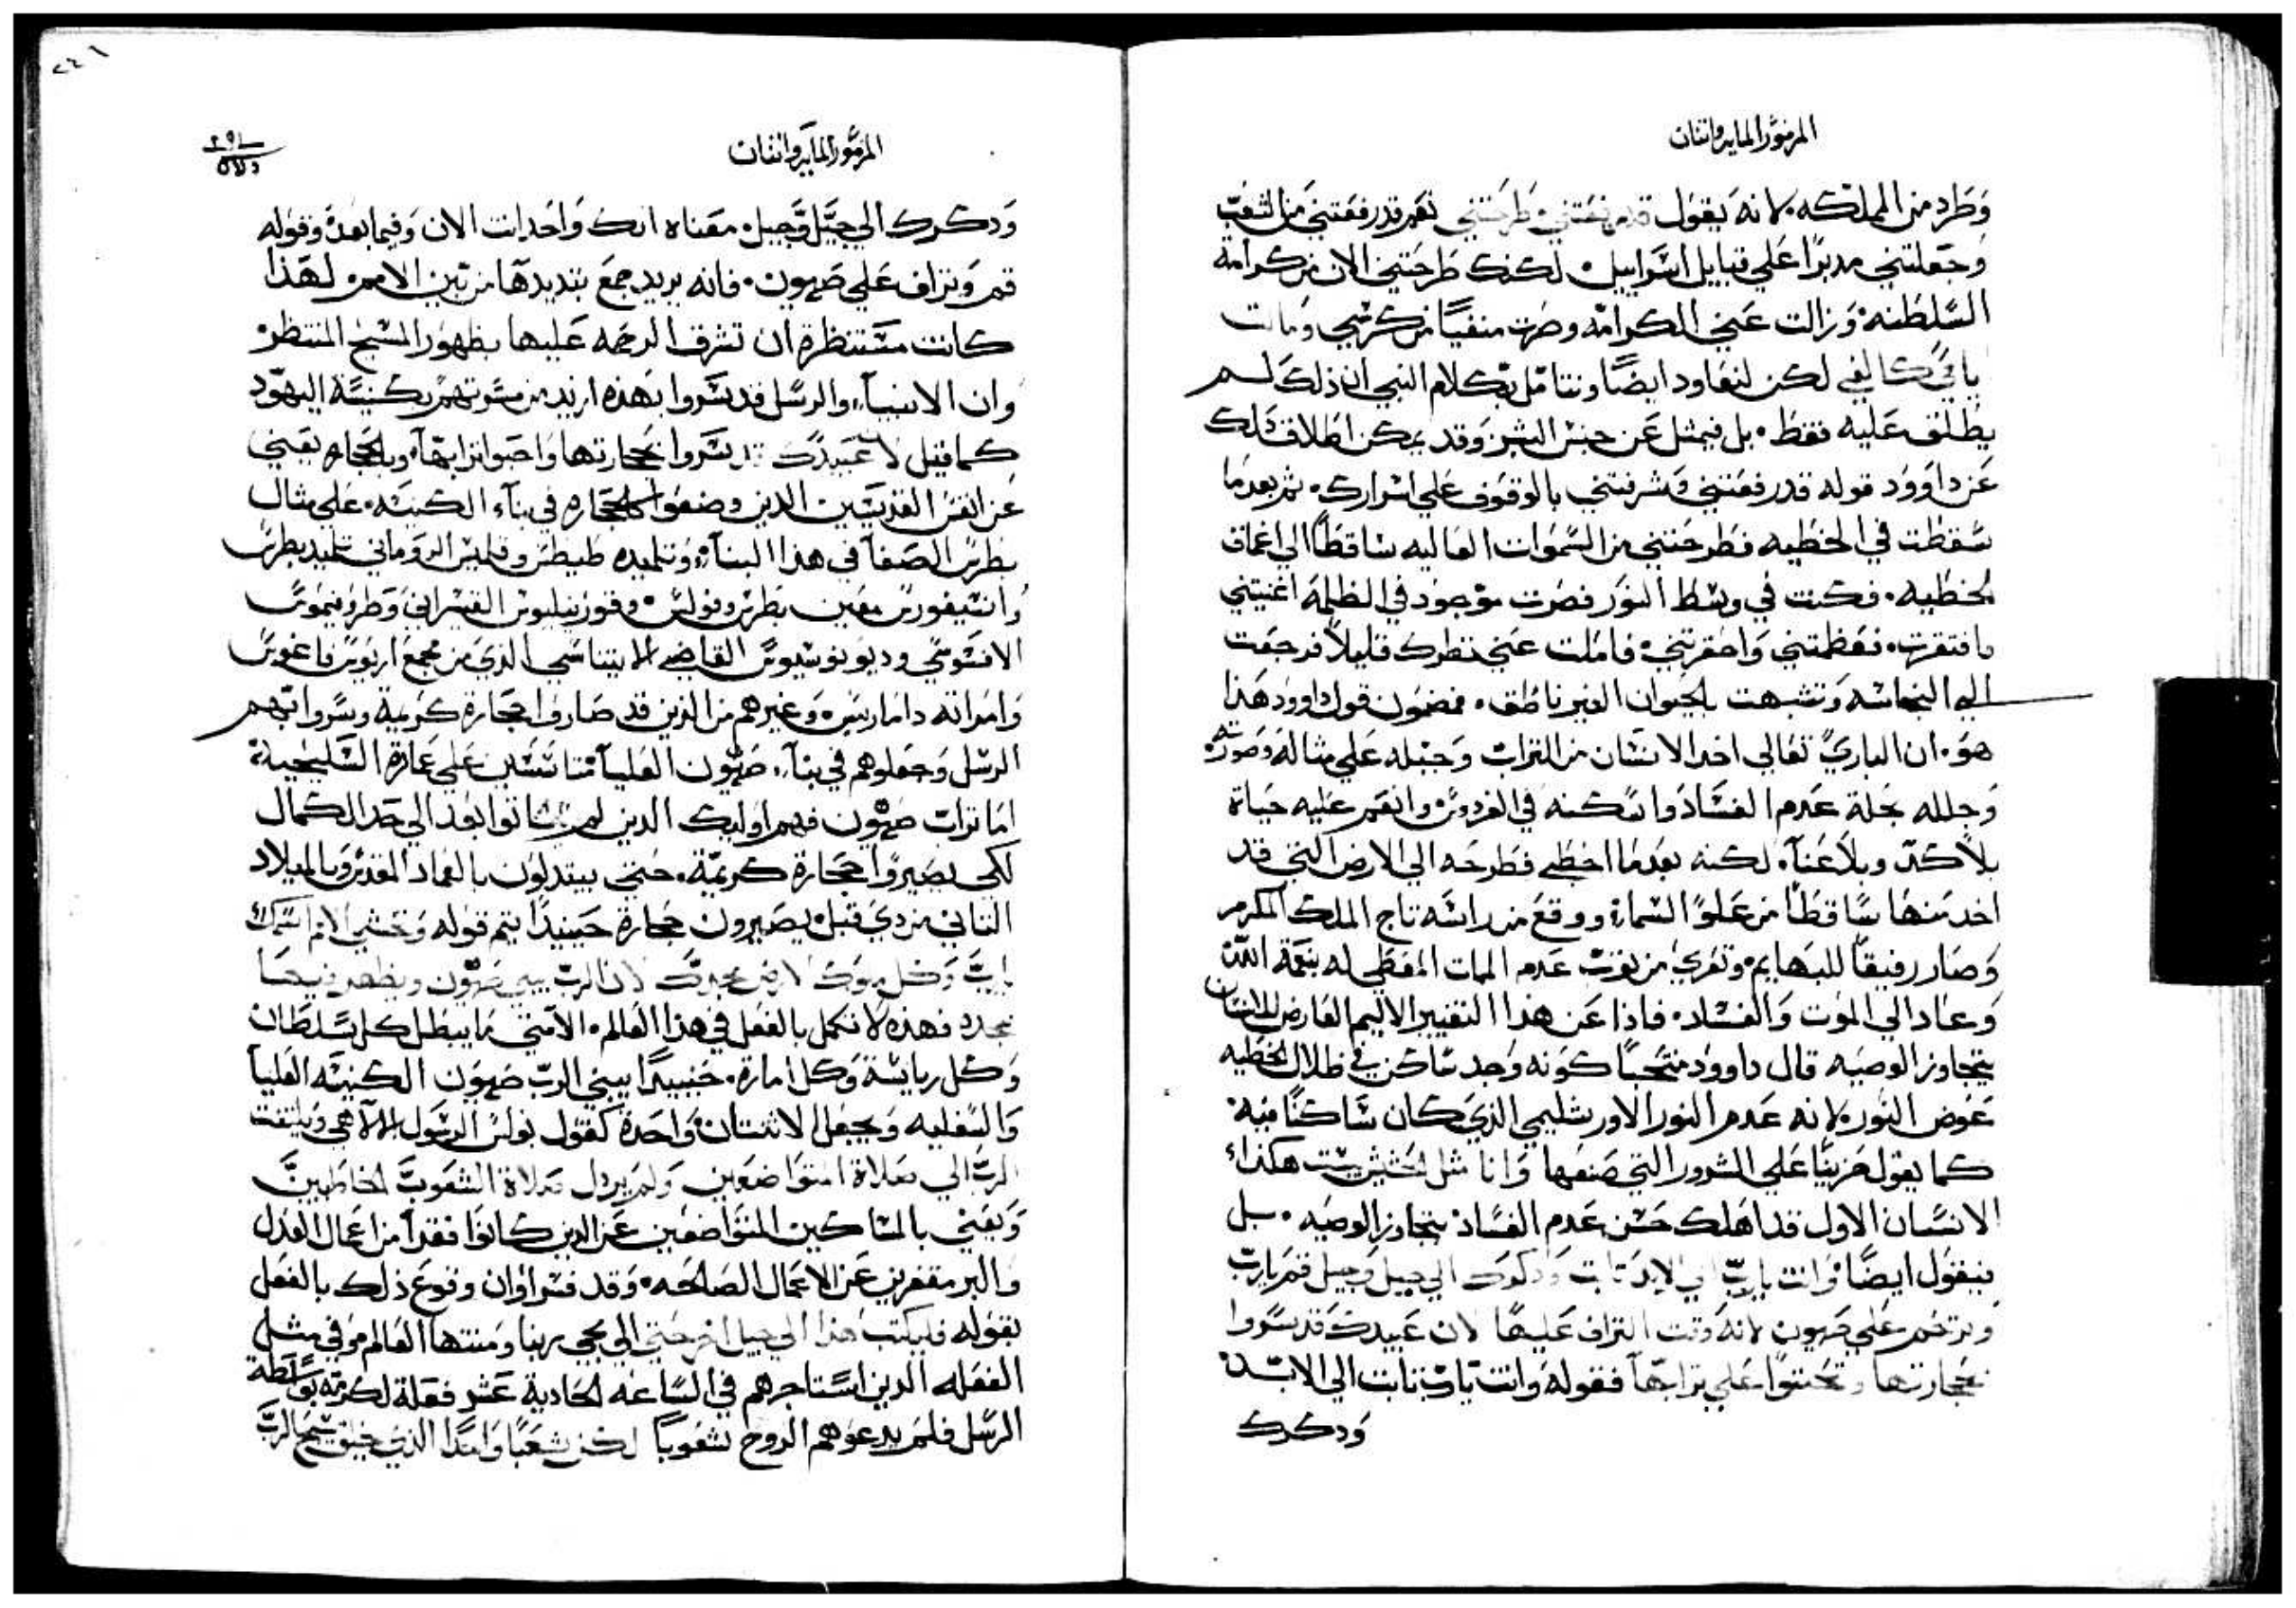 المزمور المايه واتنان
وطرد من المملكه. لانه يقول قد رفعتني وطرحتني نعم قد رفعتني من الشعب
وجعلتني مدبرًا علي قبايل اسراييل. لكنك طرحتني الان من كرامة
السلطنه. وزالت عني الكرامه وصرت منفيًا من كرسي ومالت
لكن لنعاود ايضًا ونتامل بكلام النبي ان ذلك لم
يطلق عليه فقط. بل فيمثل عن جنس البشر وقد يمكن اطلاق ذلك
عن داوود قوله قد رفعتني وشرفتني بالوقوف علي اسرارك. ثم بعدما
سقطت في الخطيه فطرحتني من السموات العاليه ساقطًا الي اعماق
الخطيه. فكنت في وسط النور فصرت موجود في الظلمه اغنيتني
فافتقرت. فعظمتني واحقرتني. فاملت عني نظرك قليلاً فرجعت
الي النجاسه وتشبهت بالحيوان الغير ناطق. فمضمون قول داوود هذا
هو. ان الباري تعالي اخد الانسان من التراب وجبله علي مثاله وصورته
وجلله بحلة عدم الفساد واسكنه في الفردوس وانعم عليه حياة
بلا كد وبلا عنآ. لكنه بعدما اخطي فطرحه الي الارض التي قد
اخد منها ساقطًا من علو السماء ووقع من راسه تاج الملك المكرم
وصار رفيقًا للبهايم. وتعري من توب عدم الممات المعطي له بنعمة الله
وعاد الي الموت والفساد. فاذا عن هذا التغيير الاليم العارض للانسان
بتجاوز الوصيه قال داوود منتحبًا كونه وجد ساكن في ظلال الخطيه
عوض النور. لانه عدم النور الاورشليمي الذي كان ساكنًا فيه.
كما يقول حزينًا علي الشرور التي صنعها وانا مثل الحشيش يبست هكذا
الانسان الاول قد اهلك حسن عدم الفساد بتجاوز الوصيه. بل
فيقول ايضًا وانت يارب الي الابد تابت ودكرك الي جيل وجيل قم يارب
وترحم علي صهيون لانه وقت التراف عليها لان عبيدك قد سروا
بحجارتها وتحننوا علي ترابها فقوله وانت يارب تابت الي الابد
ودكرك
المزمور المايه واتنان
ودكرك الي جيل وجيل. معناه انك واحد انت الان وفيما بعد وقوله
قم وتراف علي صهيون. فانه يريد جمع بتديدها من بين الامم. لهذا
كانت مستنظرة ان تشرق الرحمه عليها بظهور المسيح المنتظر
وان الانبيآ والرسل قد سروا بهذه ازيد من مسرتهم بكنيسة اليهود
كما قيل لان عبيدك قد سروا بحجارتها واحبوا ترابها. وبالحجاره يعني
عن انفس القديسين الدين وضعوا كالحجاره في بنآء الكنيسه. علي مثال
بطرس الصفا في هذا البنآ. وتلميده طيطس وقلمس الروماني تلميد بطرس
بطرس وبولس وقورنيليوس القيسراني وطروفيموس
الافسوسي وديونوسيوس القاضي الاتيناسي الذي من مجمع اريوس فاغوس
وامراته داماريس. وغيرهم من الذين قد صاروا حجارة كريمة وسروا بهم
الرسل وجعلوهم في بنآء صهيون العليا متاسسين علي عمارة السليحيه
اما تراب صهيون فهم اوليك الدين لم ياتوا بعد الي حد الكمال
لكي يصيروا حجارة كريمة. حتي يبتدلون بالعماد المقدس وبالميلاد
التاني من دي قبل. يصيرون حجارة حينيدًا يتم قوله وتخشي الامم اسمك
يارب وكل ملوك الارض مجدك لان الرب يبني صهيون ويظهر فيها
بمجده فهذه لا تكمل بالفعل في هذا العالم. الا متي ما يبطل كل سلطان
وكل رياسة وكل امارة. حينيدًا يبني الرب صهيون الكنيسه العليا
والسفليه ويجعل الاتنتان واحدة كقول بولس الرسول الالاهي ويلتفت
الرب الي صلاة المتواضعين ولم يردل صلاة الشعوب الخاطيين
ويعني بالمساكين المتواضعين عن الدين كانوا فقرآ من اعمال العدل
والبر مقفرين عن الاعمال الصالحه. وقد فسر اوان وقوع ذلك بالفعل
بقوله فليكتب هذا الي جيل اخر حتي الي مجي ربنا ومنتها العالم وفي مثل
الفعله الدين استاجرهم في الساعه الحادية عشر فعلة لكرمه بواسطة
الرسل فلم يدعوهم الروح شعوبًا لكن شعبًا واحدًا الذي خلق يسبح الرب